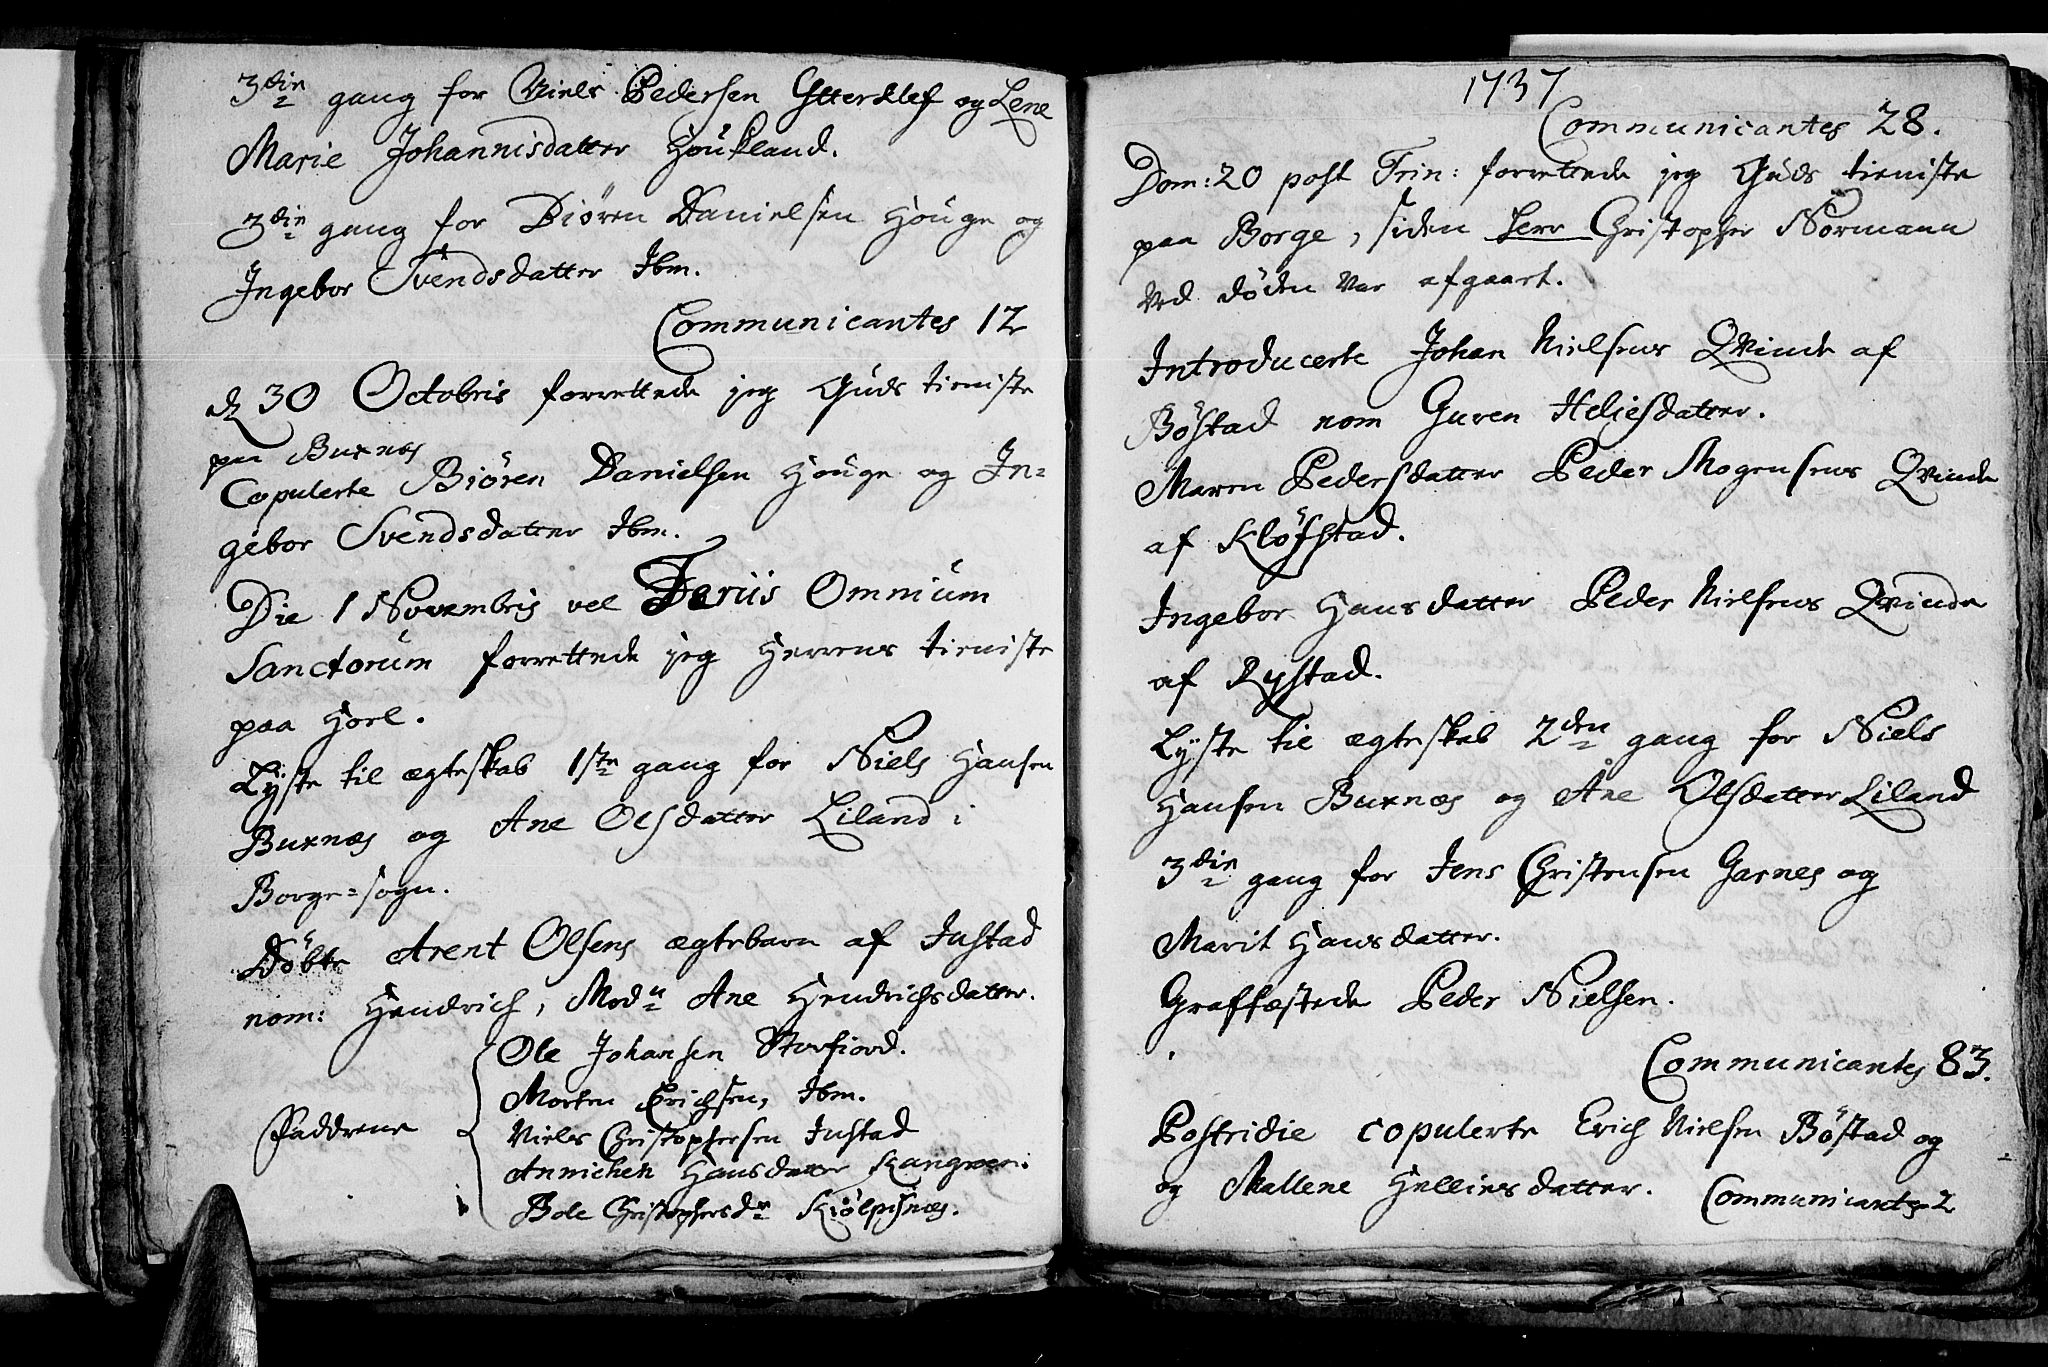 3die gang for Niels Pedersen Ytterklef og Lene
Marie Johannisdatter Houkland.
3die gang for Biören Danielsen Houge og
Ingebor Svendsdatter Ibm.
Communicantes 12
d 30 Octobris forrettede jeg Guds tieniste
paa Buxnæs
Copulerte Biören Danielsen Houge og In-
gebor Svendsdatter Ibm.
Die 1 Novembris vel Feriis Omnium
Sanctorum forrettede jeg Herrens tieniste
paa Hoel.
Lyste til ægteskab 1ste gang for Niels Hansen
Buxnæs og Ane Olsdatter Liland i
Borge-sogn.
Döbte Arent Olsens ægtebarn af Justad
nom: Hendrich, Modn Ane Hendrichsdatter.
Ole Johansen Storfiord.
Morten Erichsen, Ibm.
Faddrene
Niels Christophersen Justad
Annichen Hansdatter
Bole Christophersdr Kiölpisnæs.
1737
Communicantes 28.
Dom: 20 post Trin: forrettede jeg Guds tieniste
paa Borge, siden Herr Christopher Normann
ved döden var afgaaet.
Introducerte Johan Nielsens Qvinde af
Böstad nom Guren Heliesdatter.
Maren Pedersdatter Peder Mogensens Qvinde
af Klöfstad.
Ingebor Hansdatter Peder Nielsens Qvinde
af Rystad.
Lyste til ægteskab 2den gang for Niels
Hansen Buxnæs og Ane Olsdatter Liland
3die gang for Jens Christensen Garnes og
Marit Hansdatter.
Graffæstede Peder Nielsen.
Communicantes 83.
Postridie copulerte Erich Nielsen Böstad og
og Mallene Helliesdatter. Communicantes 2